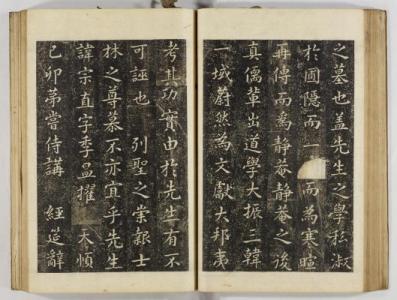 之墓也盖先生之學私淑
於圃隱而一 而為寒暄
再傳而為靜菴靜菴之後
真儒輩出道學大振三韓
一域蔚然為文獻大邦夷
考其功實由於先生有不
可誣也 列聖之崇報士
林之尊慕不亦宜乎先生
諱宗直字季昷擢 天順
己卯第嘗侍講 經筵辭